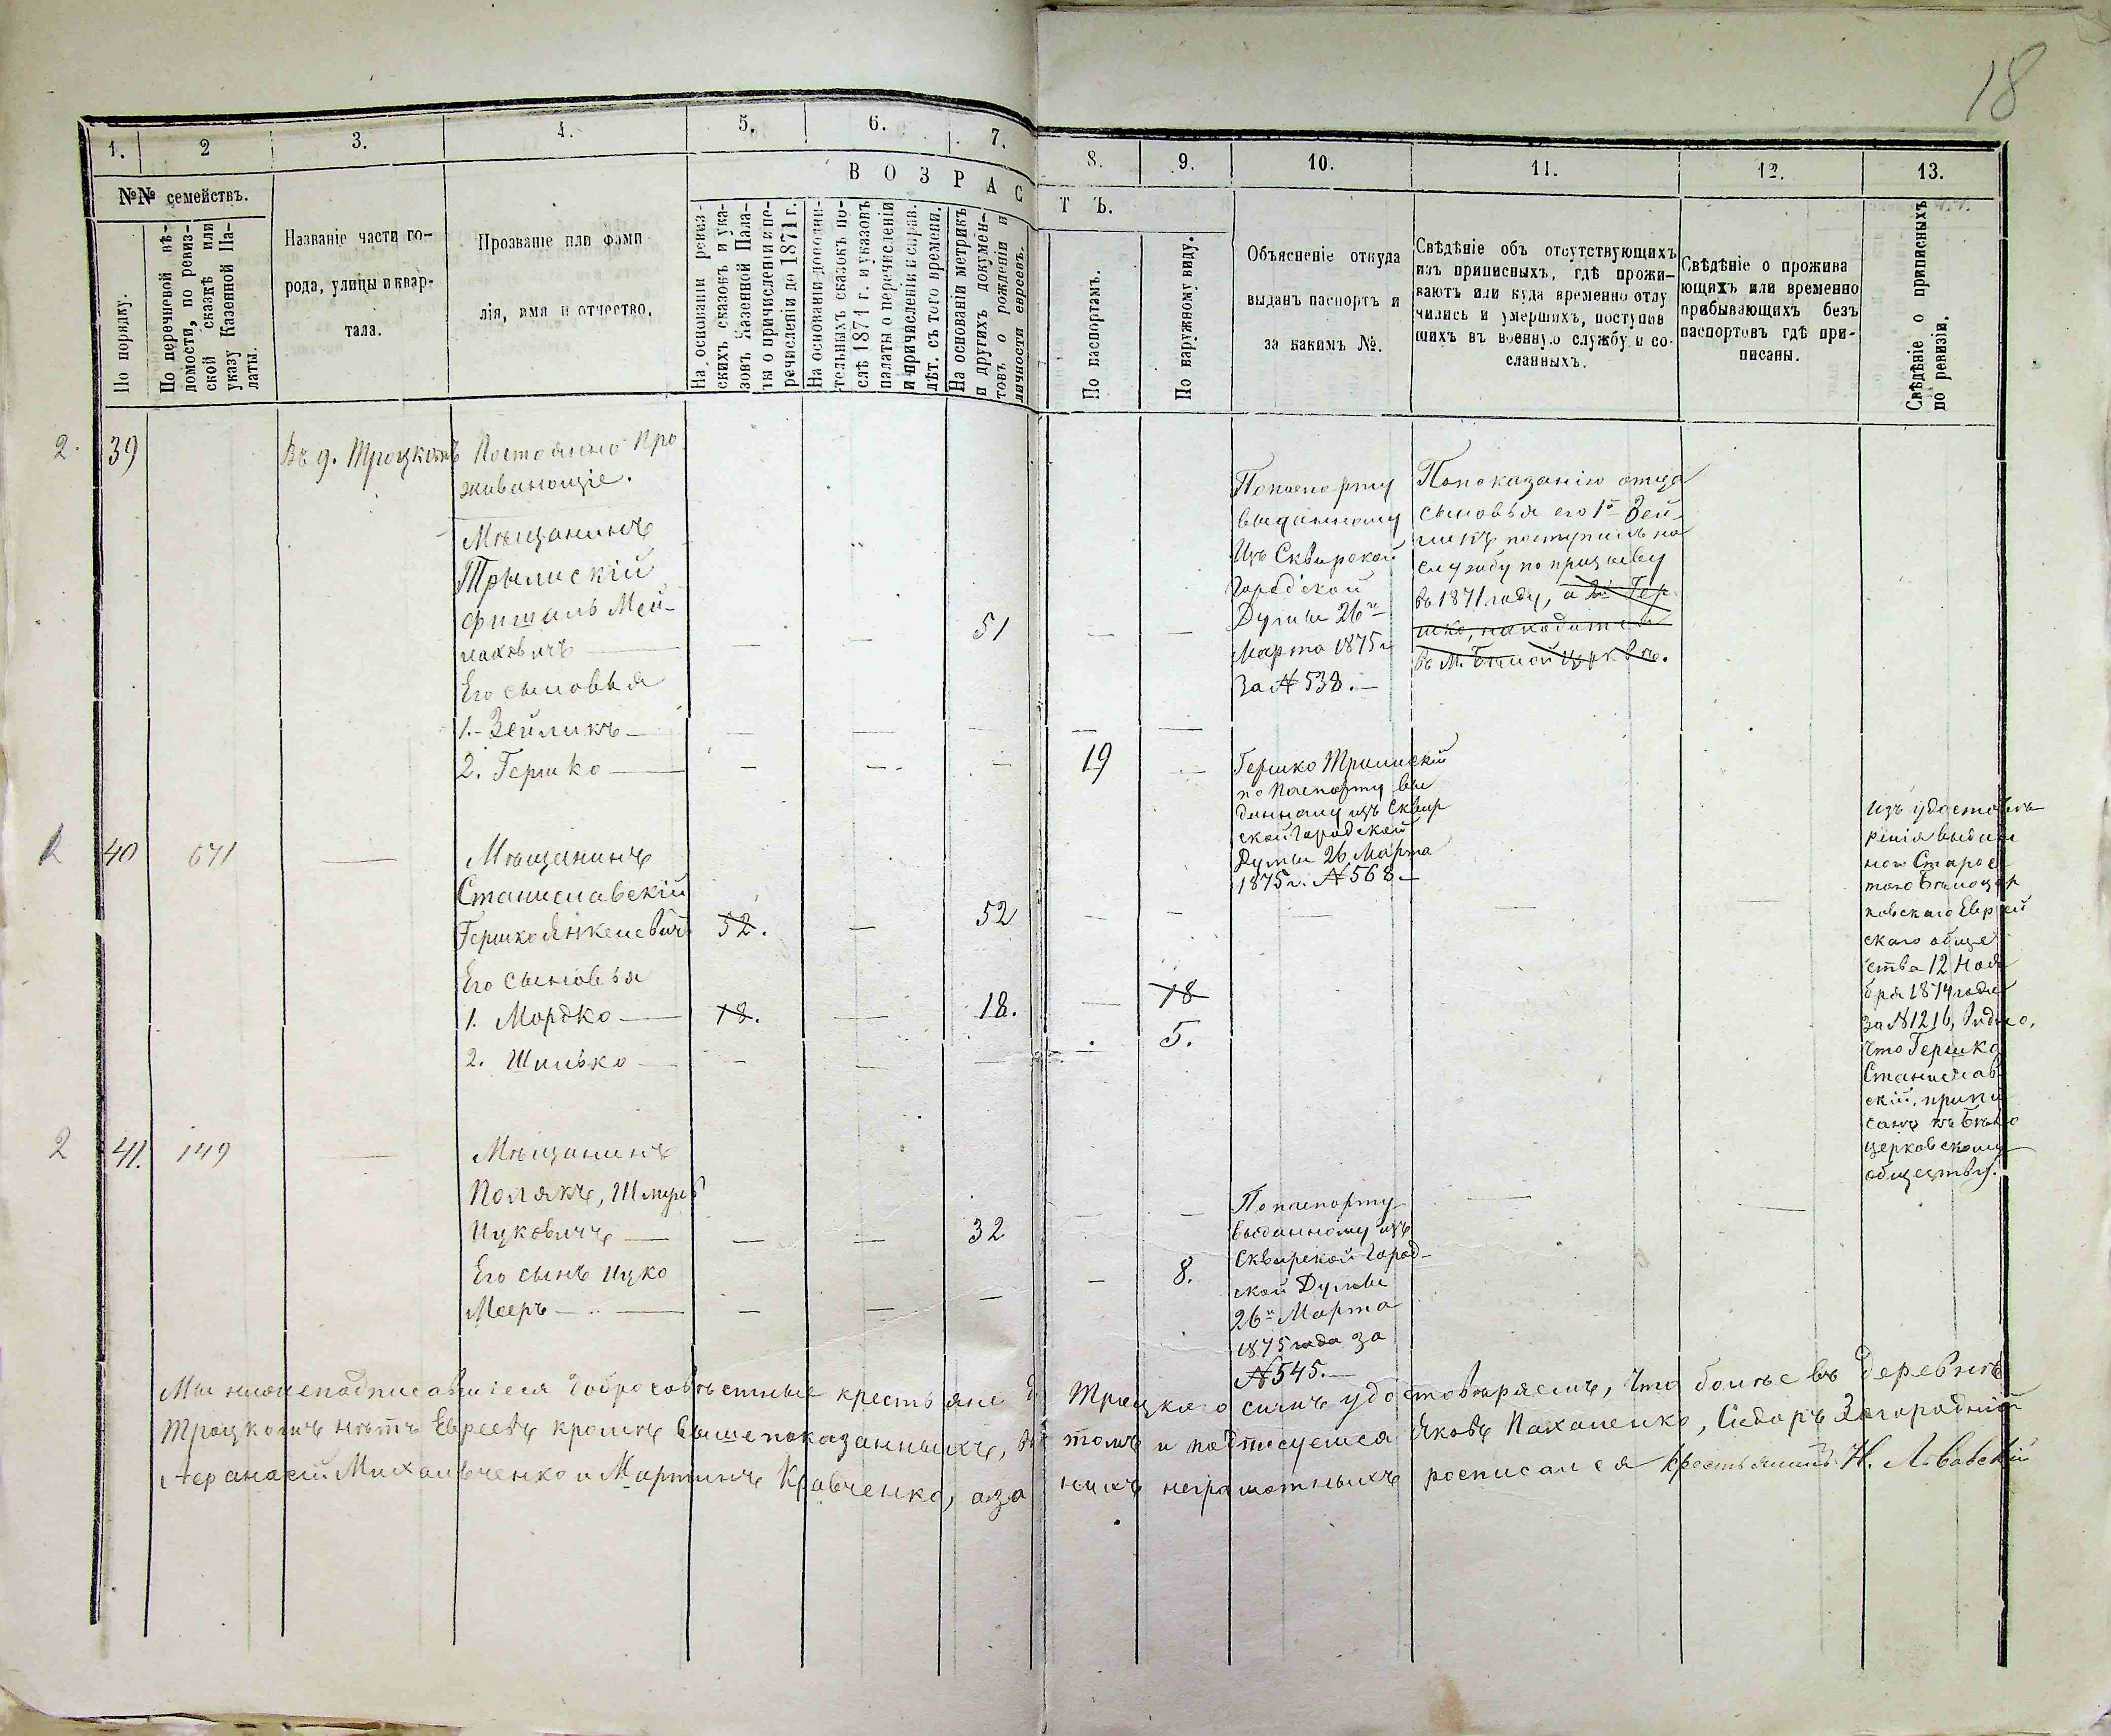 18
1.
2
3.
4.
5.
6.
7.
8.
9.
10.
11.
12.
13.
№№ семействъ.
В О З Р А С
Т Ъ.
По порядку.
По перечневой вѣ-
домости, по ревиз-
ской сказкѣ или
указу Казенной Па-
латы.
Названіе части го-
рода, улицы и квар-
тала.
Прозваніе или фами
лія, имя и отчество.
На основаніи ревиз-
скихъ сказокъ и ука-
зовъ Казенной Пала-
ты о причисленіи и пе-
речисленіи до 1871 г.
На основаніи дополни-
тельныхъ сказокъ по-
слѣ 1871 г. и указовъ
палаты о перечисленіи
и причисленіи к справ.
лѣт. съ того времени.
На основаніи метрикъ
и другихъ докумен-
товъ о рожденіи и
личности евреевъ.
По паспортамъ.
По наружному виду.
Объясненіе откуда
выданъ паспортъ и
за какимъ №.
Свѣдѣніе объ отсутствующихъ
изъ приписныхъ, гдѣ прожи-
ваютъ или куда временно отлу
чились и умершихъ, поступив
шихъ въ военную службу и со-
сланныхъ.
Свѣдѣніе о прожива
ющихъ или временно
прибывающихъ безъ
паспортовъ гдѣ при-
писаны.
Свѣдѣніе о приписныхъ
по ревизіи.
2.
39
Въ д. Троцкомъ
Постоянно про
живающіе.
Мѣщанинъ
Трылискій
Фишель Мей-
наховичъ
51
Его сыновья
1.- Зейликъ
2. Гершко
19
Попаспорту
выданному
Изъ Сквирской
Городской
Думы 26го
Марта 1875 г
За № 538.
Гершко Трилискій
по паспорту вы
данному изъ Сквир
ской Городской
Думы 26 Марта
1875 г. № 568
Попоказанію отца
сыновья его 1й Зей-
ликъ поступилъ на
службу по призыву
въ 1871 году, а 2й Гер
шко, находится
въ М. Бѣлой церквѣ.
2
40
671
Мѣщанинъ
Станиславскій
Гершко Янкелевичъ
52.
52
Его сыновья
1. Мордко
18.
18.
18
2. Шилько
5.
Изъ удостовѣ
ренія выдан
ного Старос
тою Бѣлоцер
ковскаго Еврей
скаго обще
ства 12 Нояб
бря 1874 года
за № 1216, видно,
что Гершко
Станислав
скій, припи
санъ къ Бѣло
церковскому
обществу.
2
41.
149
Мѣщанинъ
Полякъ, Шмуль
Ицковичъ
32
Его сынъ Ицко
Мееръ
8.
Попаспорту
выданному изъ
Сквирской Город-
ской Думы
26го Марта
1875 года за
№ 545.
Мы нижеподписавшіеся добросовѣстные крестьяне д. Троцкаго симъ удостовѣряемъ, что болѣе въ деревнѣ
Троцкомъ нѣтъ Евреевъ кромѣ вышепоказанныхъ, въ томъ и подписуемся Яковъ Пахаленко, Сидоръ Загородній
Афанасій Михальченко и Мартинъ Кравченко, аза нихъ неграмотныхъ росписался крестьянинъ Н. Львовскій